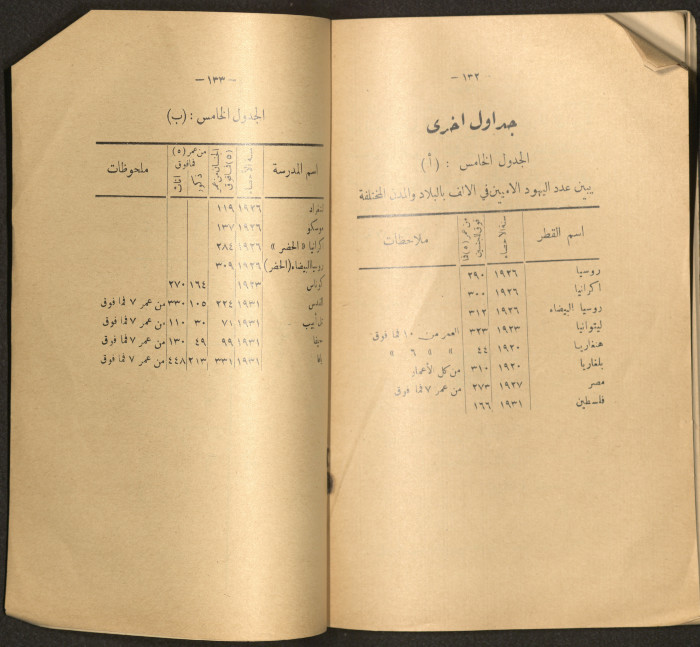 — ١٣٢ —
جداول اخرى
الجدول الخامس : (أ)
يبين عدد اليهود الاميين في الالف بالبلاد والمدن المختلفة
اسم القطر سنة الاحصاء من عمر (٥) فما فوق للجنسين ملاحظات
روسيا ١٩٢٦ ٢٩٠
اكرانيا ١٩٢٦ ٣٠٠
روسيا البيضاء ١٩٢٦ ٣١٢
ليثوانيا ١٩٢٣ ٣٢٣ العمر من ١٠ فما فوق
هنغاريا ١٩٢٠ ٤٤ » » ٦ »
بلغاريا ١٩٢٠ ٣١٠ من كل الأعمار
مصر ١٩٢٧ ٢٧٣ من عمر ٧ فما فوق
فلسطين ١٩٣١ ١٦٦
— ١٣٣ —
الجدول الخامس : (ب)
اسم المدرسة سنة الاحصاء الجنسان من عمر (٥) فما فوق من عمر (٥) فما فوق ذكور اناث ملحوظات
لننغراد ١٩٢٦ ١١٩
موسكو ١٩٢٦ ١٣٧
كرانيا « الحضر » ١٩٢٦ ٢٨٤
روسيا البيضاء (الحضر) ١٩٢٦ ٣٠٩
كوناس ١٩٢٣ ١٦٤ ٢٧٠
القدس ١٩٣١ ٢٢٤ ١٠٥ ٣٣٠ من عمر ٧ فما فوق
تل أبيب ١٩٣١ ٧١ ٣٠ ١١٠ من عمر ٧ فما فوق
حيفا ١٩٣١ ٩٩ ٤٩ ١٣٠ من عمر ٧ فما فوق
يافا ١٩٣١ ٣٣١ ٢١٣ ٤٤٨ من عمر ٧ فما فوق